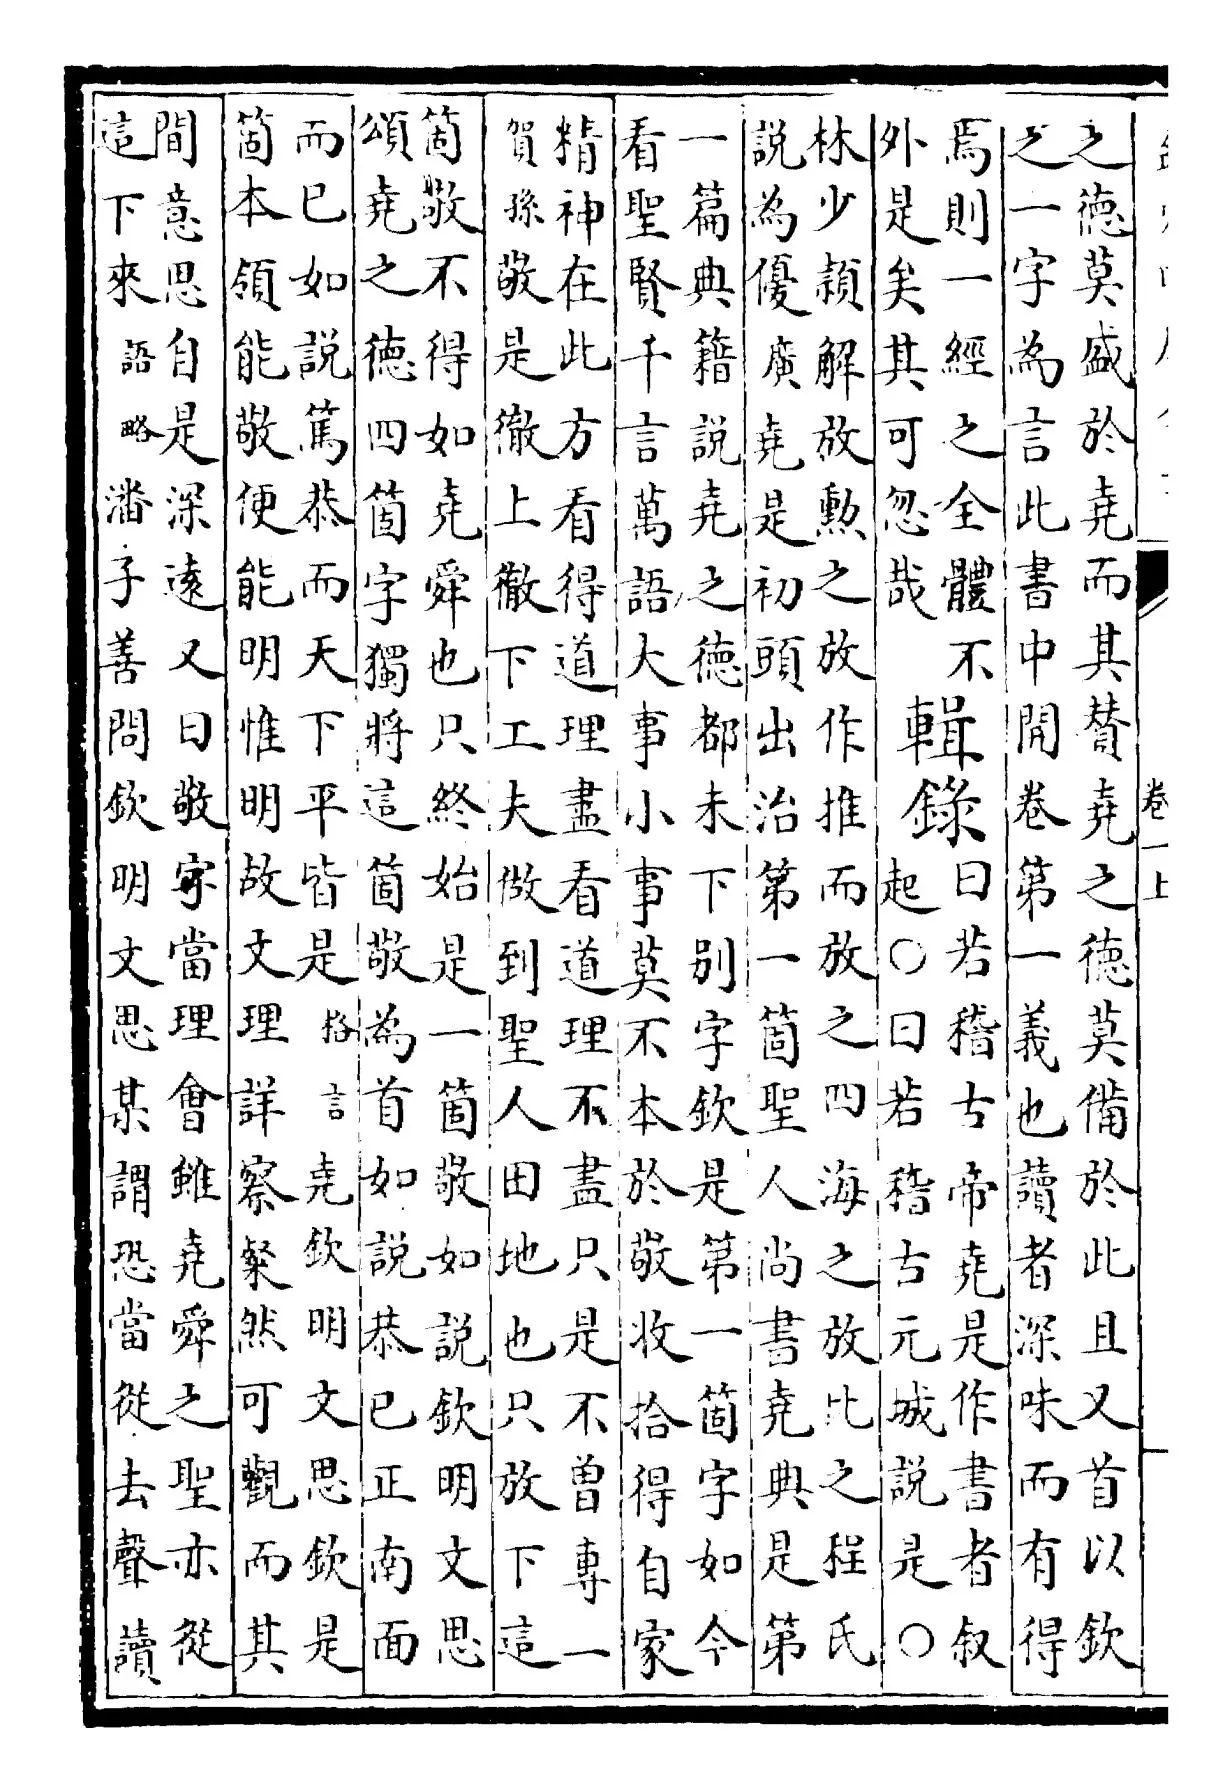 卷一上
之德莫盛於堯而其賛堯之德莫備於此且又首以欽
之一字為言此書中開卷第一義也讀者深味而有得
焉則一經之全體不
外是矣其可忽哉
輯錄
曰若稽古帝堯是作書者叙
起○曰若稽古元城説是○
林少頴解放勲之放作推而放之四海之放比之程氏
説為優廣堯是初頭出治第一箇聖人尚書堯典是第
一篇典籍説堯之德都未下别字欽是第一箇字如今
看聖賢千言萬語大事小事莫不本於敬收拾得自家
精神在此方看得道理盡看道理不盡只是不曽專一
賀孫敬是徹上徹下工夫做到聖人田地也只放下這
箇敬不得如堯舜也只終始是一箇敬如説欽明文思
頌堯之德四箇字獨將這箇敬為首如説恭已正南面
而已如説篤恭而天下平皆是格言堯欽明文思欽是
箇本領能敬便能明惟明故文理詳察粲然可觀而其
間意思自是深遠又曰敬字當理會雖堯舜之聖亦從
這下來語略潘子善問欽明文思某謂恐當從去聲讀